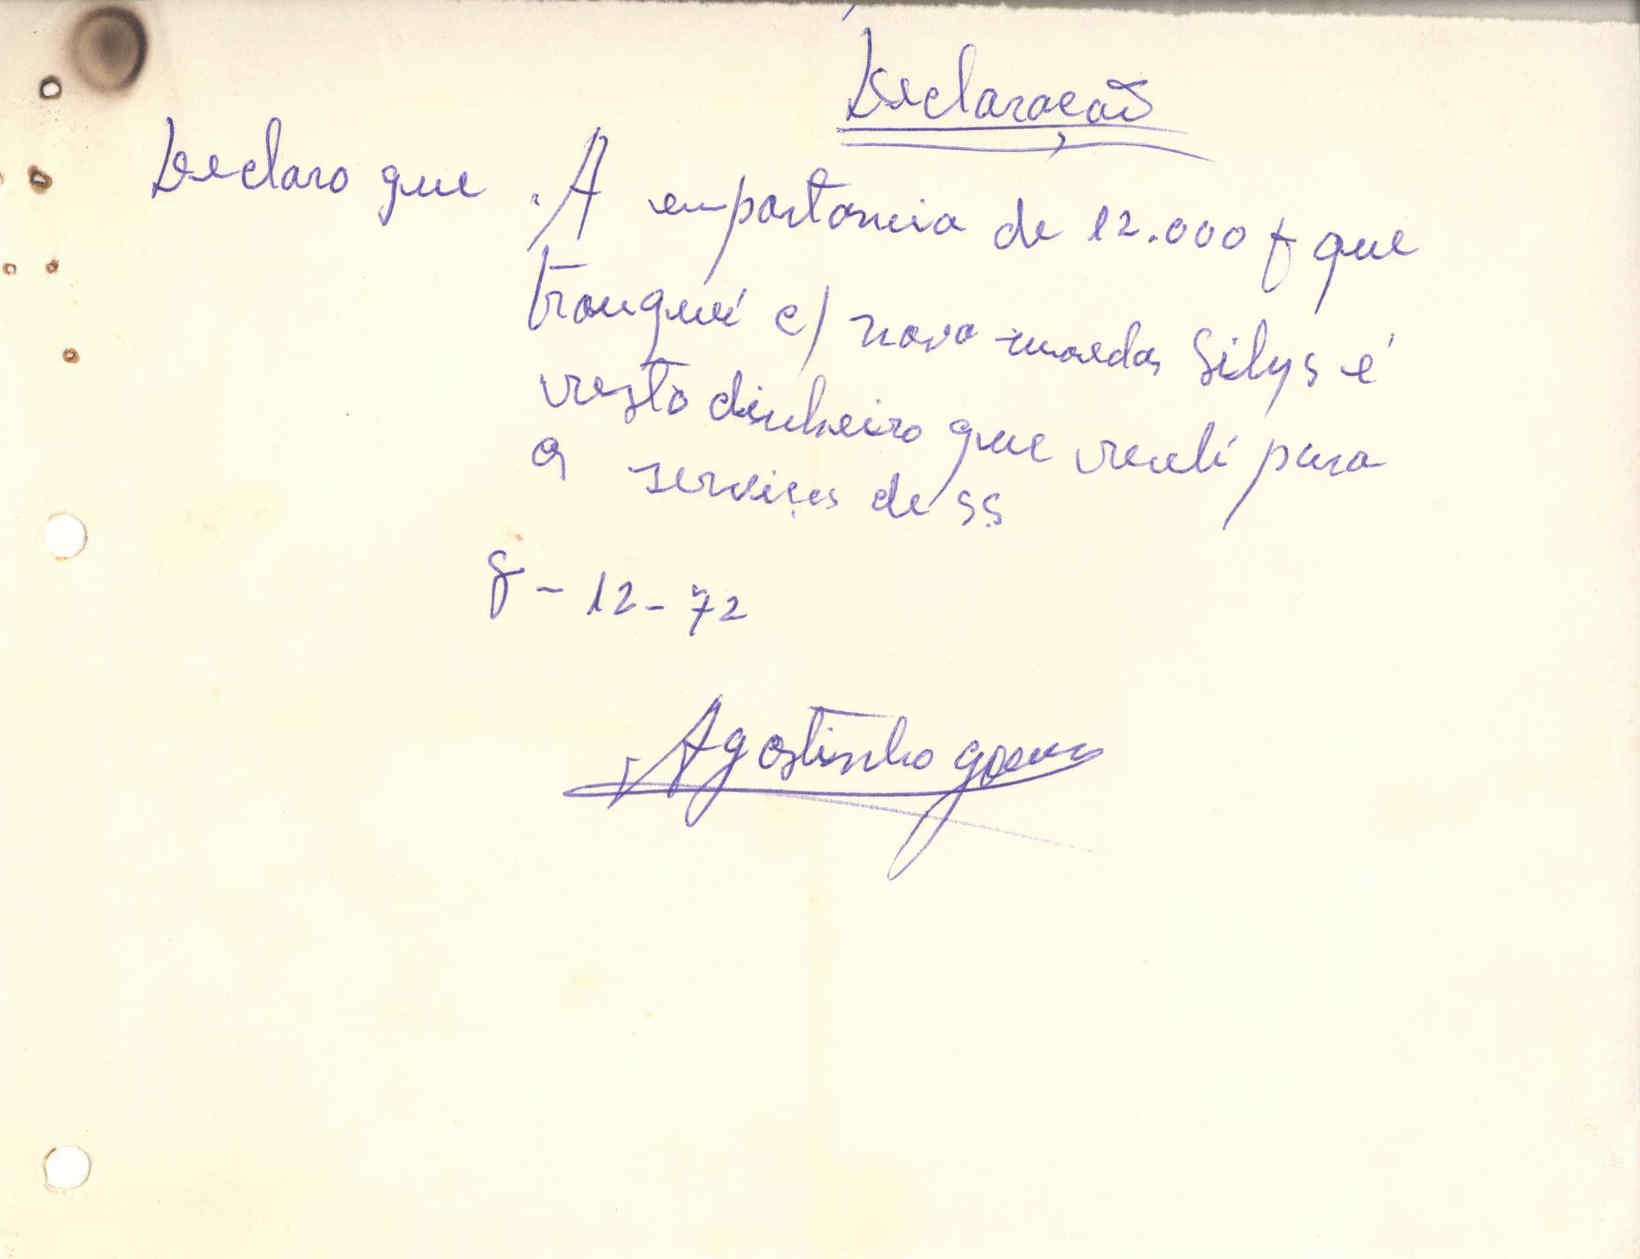 Declaração
Declaro que A emportancia de 12.000 f que
tranquei c/ novo moedas Silys é
resto dinheiro que recebi para
os serviços de SS
8-12-72
Agostinho